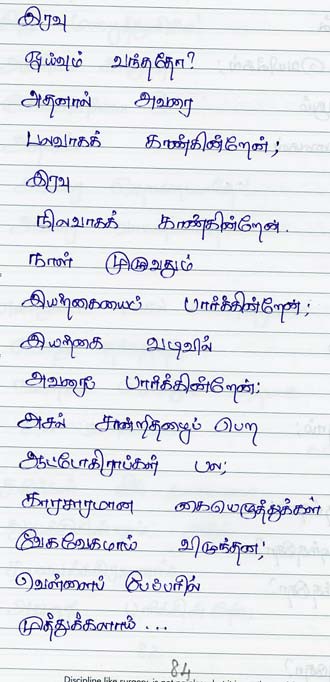 இரவு
ஓய்வும் வந்ததோ?
அதனால் அவரை
பலவாகக் காண்கின்றேன்;
இரவு
நிலவாகக் காண்கின்றேன்.
நான் முழுவதும்
இயற்கையைப் பார்க்கின்றேன்;
இயற்கை வடிவில்
அவரைப் பார்க்கின்றேன்;
அசல் சான்றிதழைப் பெற
ஆட்டோகிராப்கள் பல;
காரசாரமான கையெழுத்துக்கள்
வேகவேகமாய் விழுந்தன;
வெள்ளைப் பேப்பரில்
முத்துக்களாய் ...
84
Discipline like surgery is not